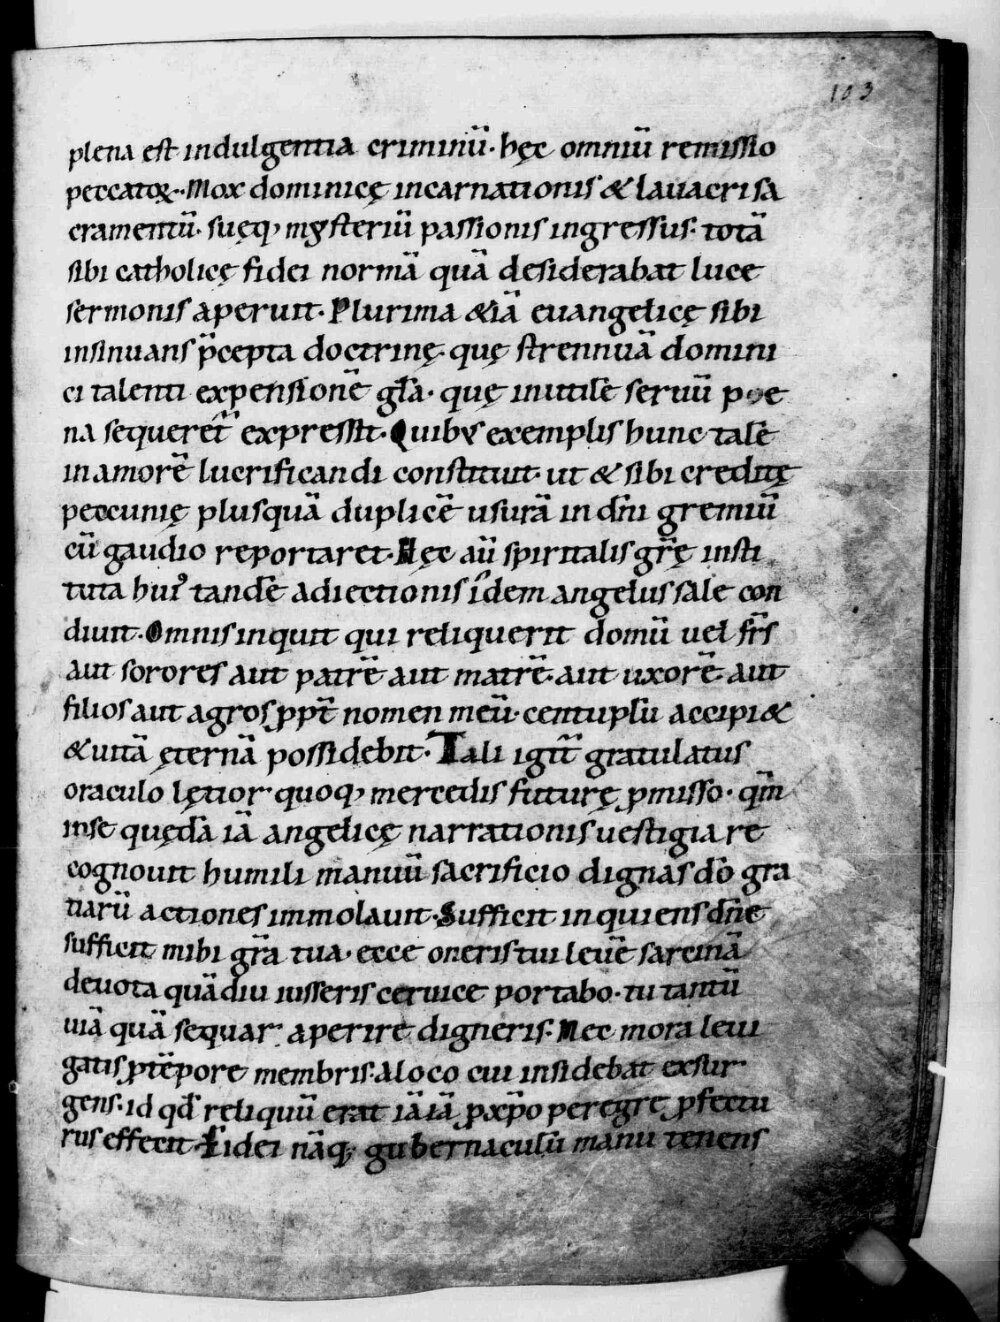 103
plena est indulgentia criminū. hęc omniū remissio
peccatoꝝ. Mox dominicę incarnationis & lauacri sa
cramentū. suęq; mysteriū passionis ingressus. totā
sibi catholicę fidei normā quā desiderabat luce
sermonis aperuit. Plurima &iā euangelicę sibi
insinuans p̄cepta doctrinę. quę strennuā domini
ci talenti expensionē gła. quę inutilē seruū poe
na sequeret᷑ expressit. Quibus exemplis hunc talē
in amorē lucrificandi constituit. ut & sibi creditę
peccunię plusquā duplicē usurā in dn̄i gremiū
cū gaudio reportaret. Hęc aū spiritalis gr̄ę insti
tuta hui᷒ tandē adiectionis idem angelus sale con
diuit. Omnis inquit qui reliquerit domū uel fr̄s
aut sorores aut patrē aut matrē. aut uxorē. aut
filios aut agros ꝓpt̄ nomen meū. centuplū accipi&
& uitā ęternā possidebit. Tali igit᷑ gratulatus
oraculo lętior quoq; mercedis futurę ꝓmisso. qm̄
in se quędā iā angelicę narrationis uestigia re
cognouit humili manuū sacrificio dignas dō gra
tiarū actiones immolauit. Sufficit inquiens dn̄e
sufficit mihi gr̄a tua. ecce oneris tui leuē sarcinā
deuota quādiu iusseris ceruice portabo. tu tantū
uiā quā sequar aperire digneris. Nec mora leui
gatis ꝑ tēpore membris. A loco cui insidebat exsur
gens. id qd̄ reliquū erat iā iā ꝓ xp̄o peregre ꝓfectu
rus effecit. Fidei nāq; gubernaculū manu tenens